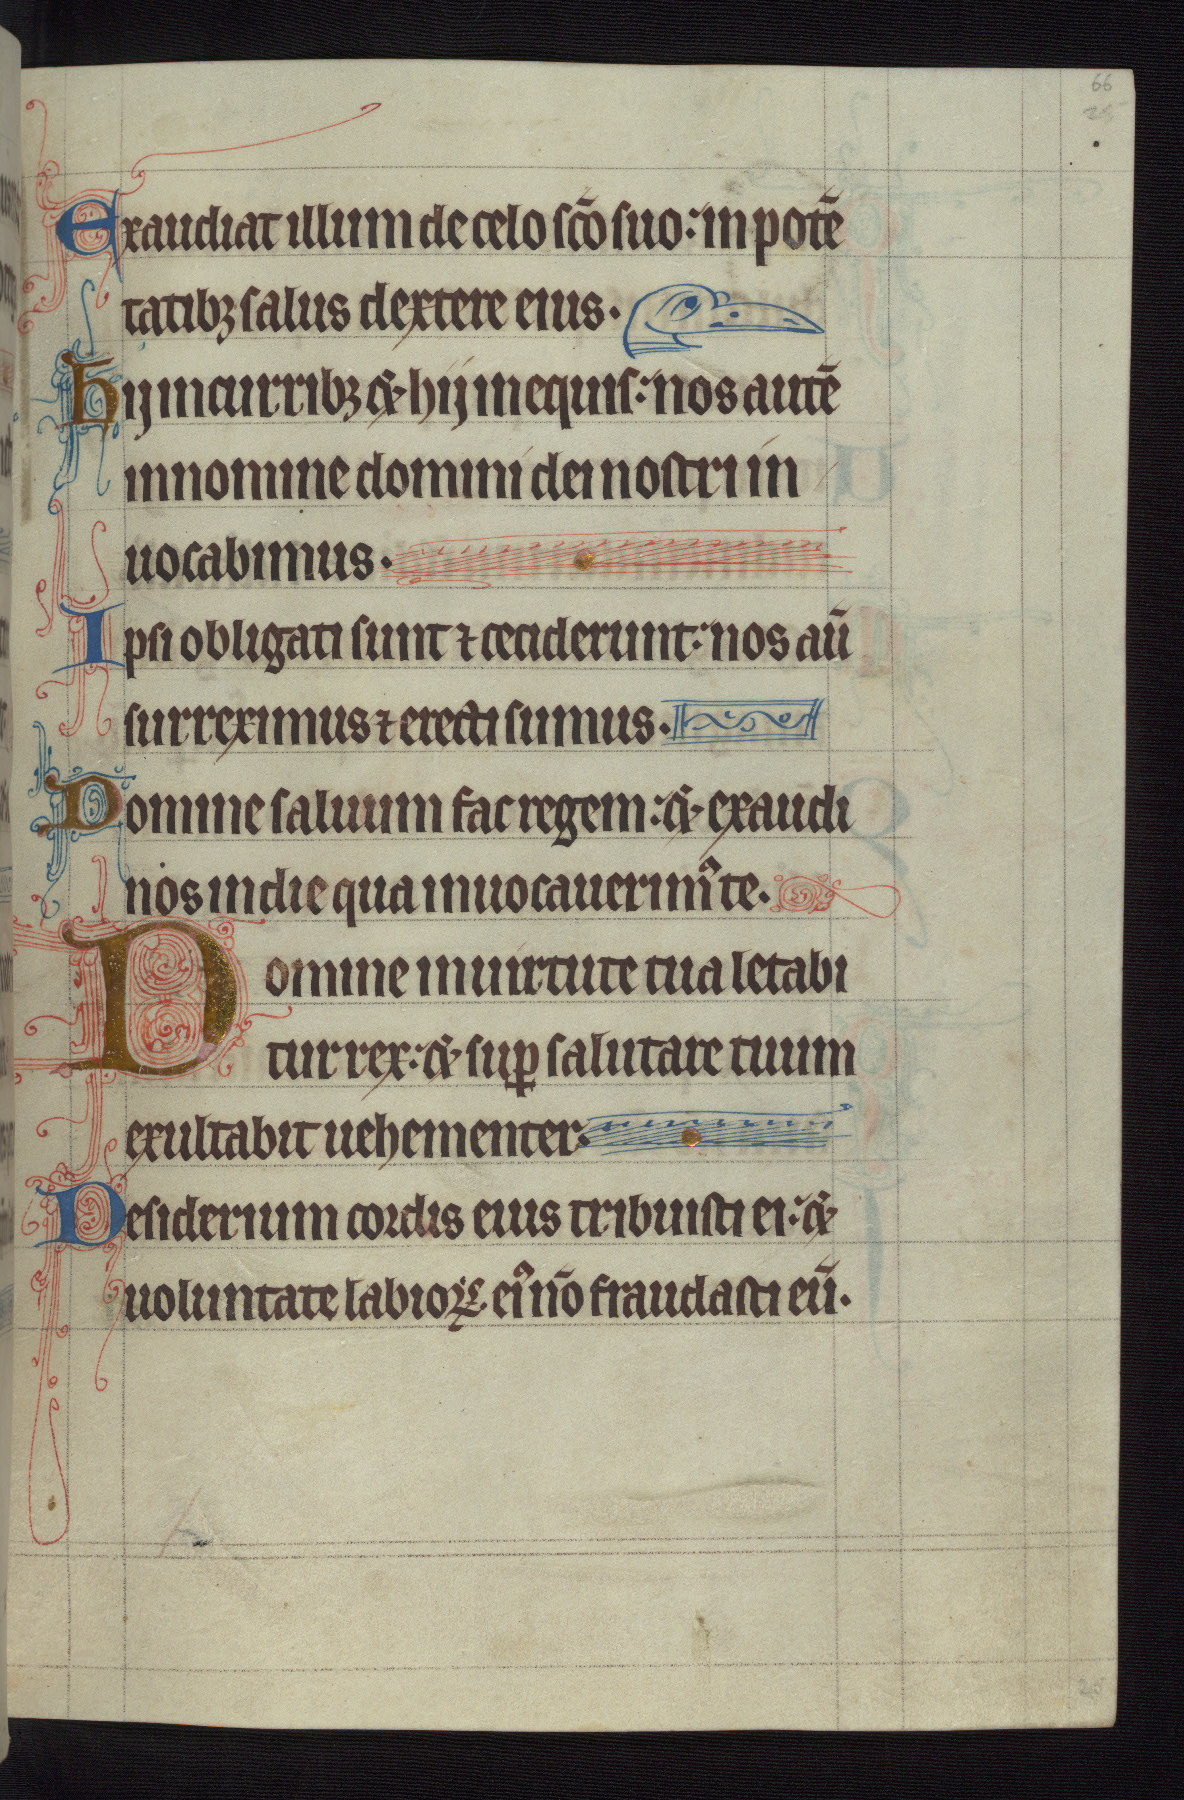 66
25
Exaudiat illum de celo sc̄o suo: in potē
tatibꝫ salus dextere eius.
Hij in curribꝫ & hij in equis: nos autē
in nomine domini dei nostri in
uocabimus.
Ipsi obligati sunt ⁊ ceciderunt: nos aū
surreximus ⁊ erecti sumus.
Domine saluum fac regem: & exaudi
nos in die qua inuocauerimꝰ te.
Domine in uirtute tua letabi
tur rex: & suꝑ salutare tuum
exultabit uehementer.
Desiderium cordis eius tribuisti ei: &
uoluntate labioꝝ eiꝰ nō fraudasti eū.
25